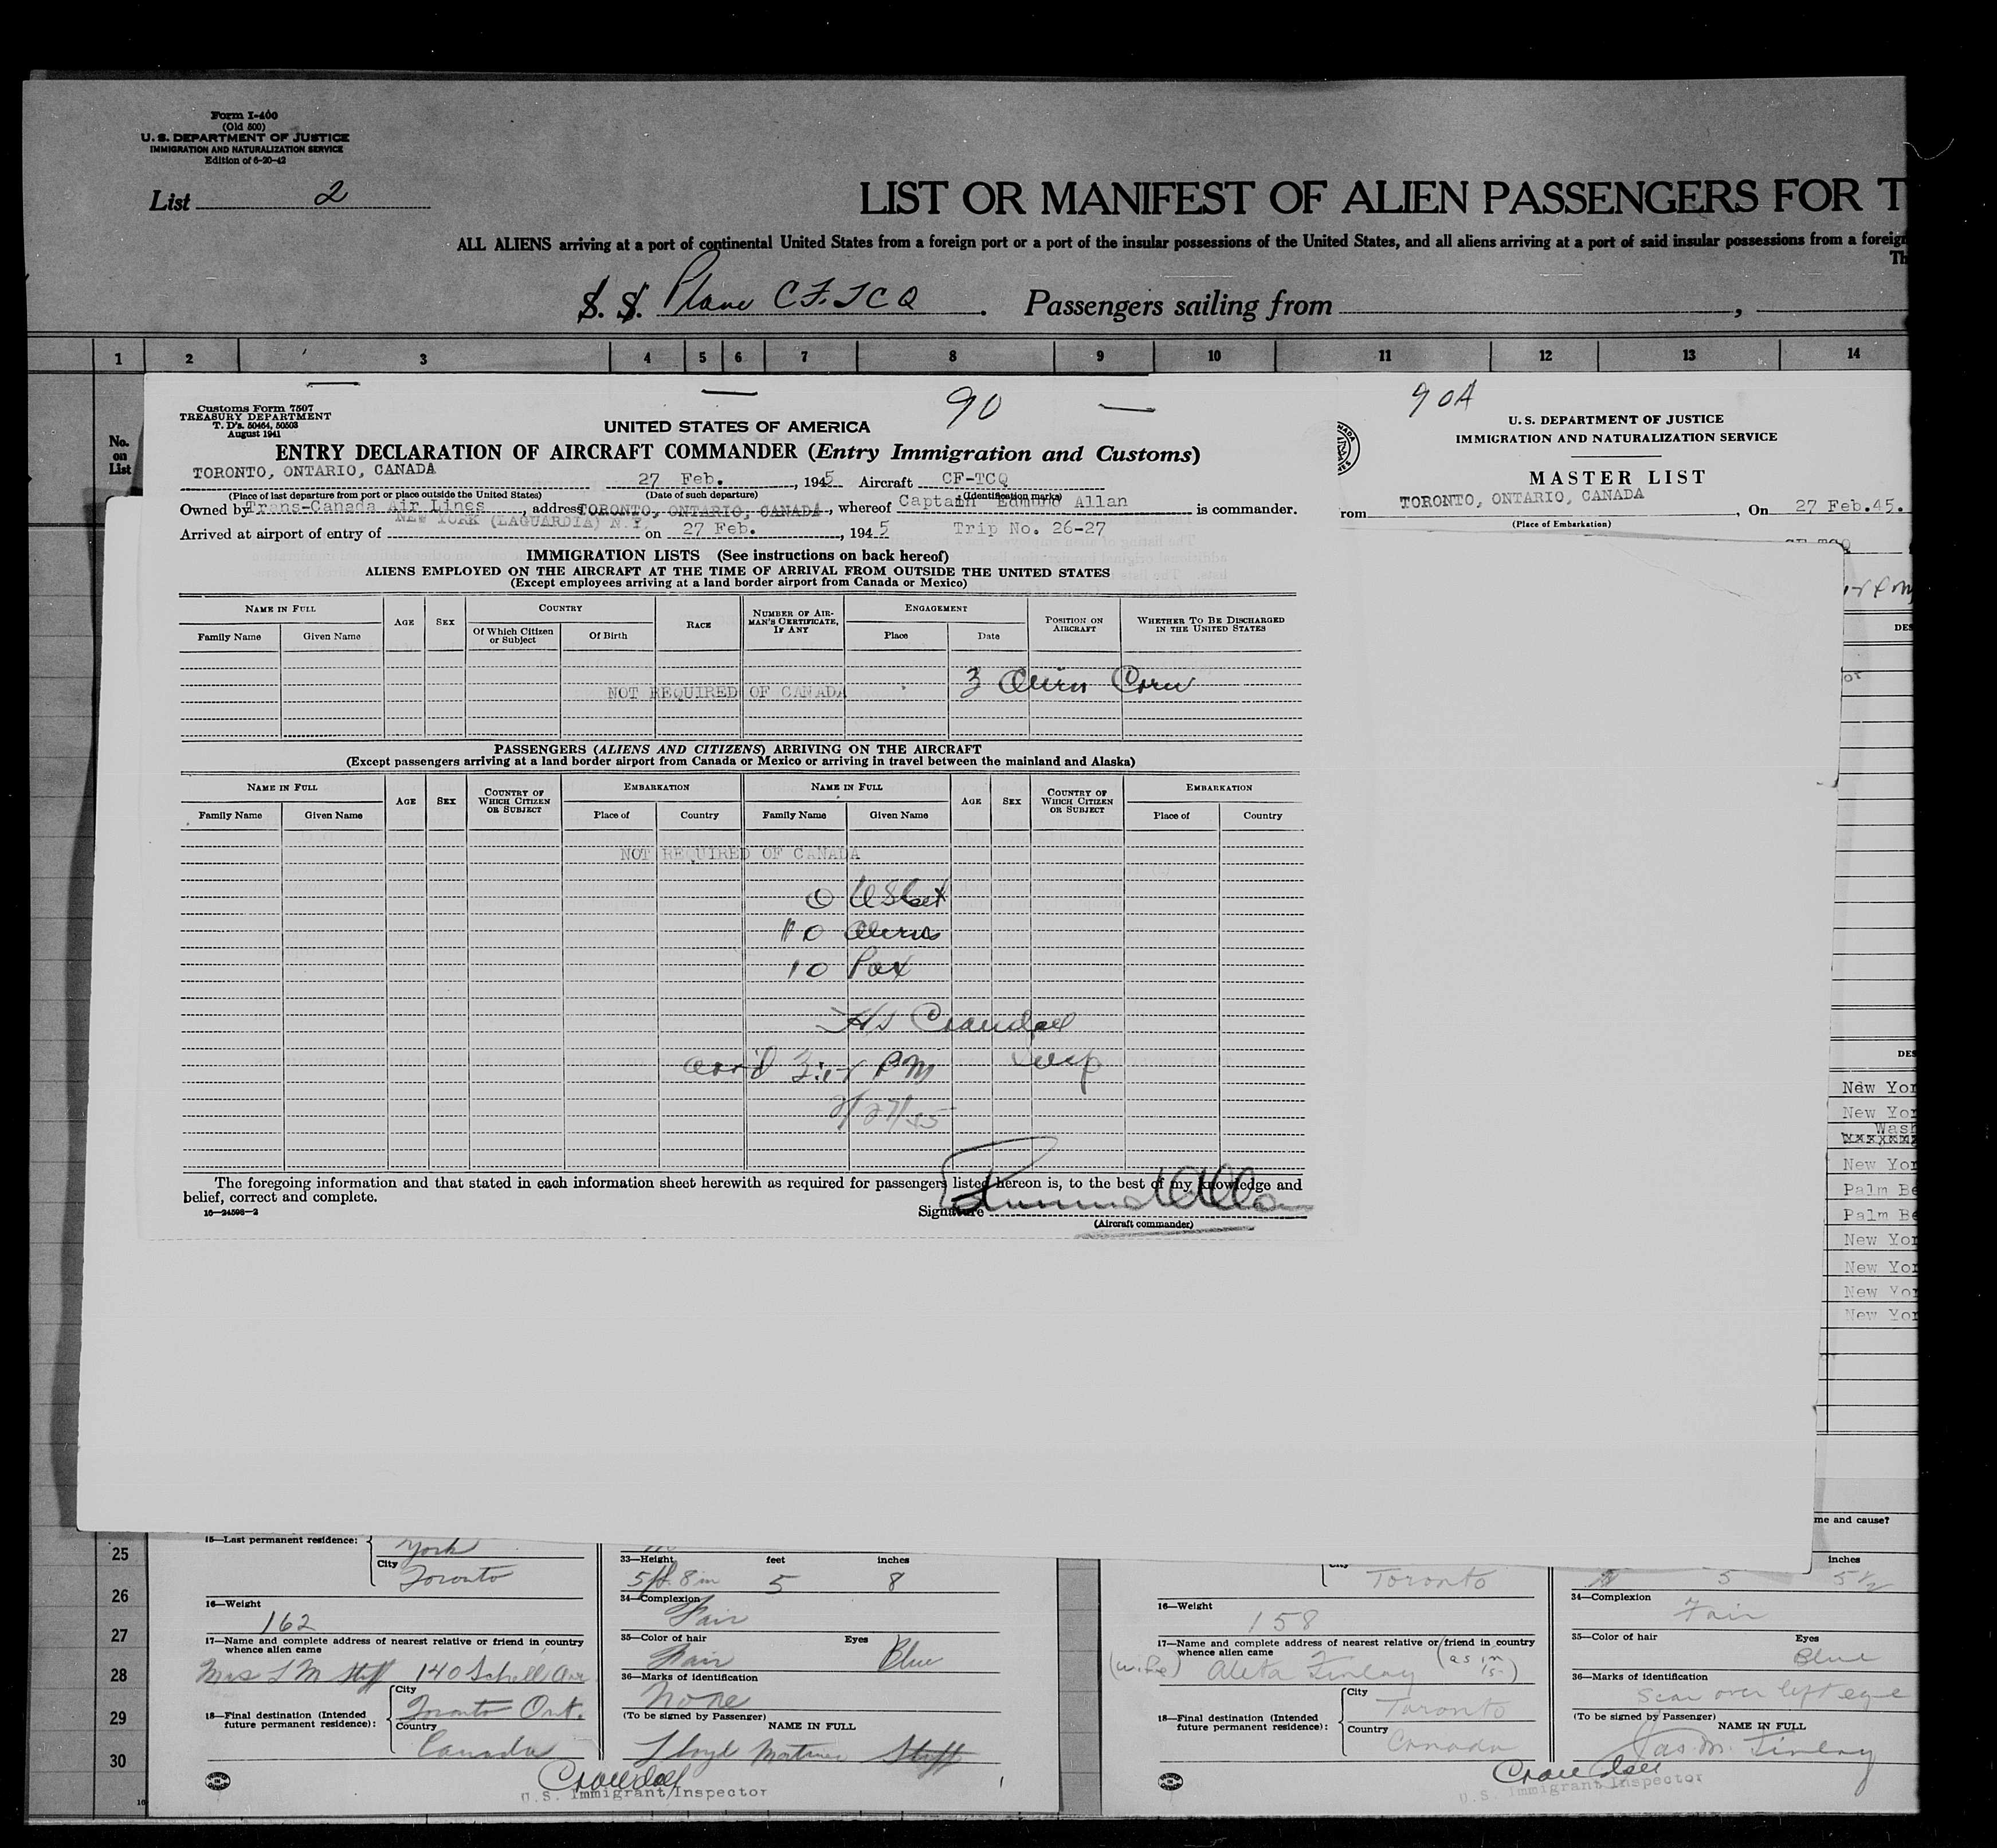 Form I-400
(Old 500)
U. S. DEPARTMENT OF JUSTICE
IMMIGRATION AND NATURALIZATION SERVICE
Edition of 6-20-42
List 2
LIST OR MANIFEST OF ALIEN PASSENGERS FOR T
ALL ALIENS arriving at a port of continental United States from a foreign port or a port of the insular possessions of the United States, and all aliens arriving at a port of said insular possessions from a foreign
Th
S. S. Plane CF-TCQ . Passengers sailing from ,
1 2 3 4 5 6 7 8 9 10 11 12 13 14
No. on List
90
Customs Form 7507
TREASURY DEPARTMENT
T. D's. 50464, 50503
August 1941
UNITED STATES OF AMERICA
ENTRY DECLARATION OF AIRCRAFT COMMANDER (Entry Immigration and Customs)
TORONTO, ONTARIO, CANADA 27 Feb. , 1945 Aircraft CF-TCQ
(Place of last departure from port or place outside the United States) (Date of such departure) (Identification marks)
Owned by Trans-Canada Air Lines , address TORONTO, ONTARIO, CANADA , whereof Captain Edmund Allan is commander.
Arrived at airport of entry of NEW YORK (LAGUARDIA) N.Y. on 27 Feb. , 1945 Trip No. 26-27
IMMIGRATION LISTS (See instructions on back hereof)
ALIENS EMPLOYED ON THE AIRCRAFT AT THE TIME OF ARRIVAL FROM OUTSIDE THE UNITED STATES
(Except employees arriving at a land border airport from Canada or Mexico)
NAME IN FULL AGE SEX COUNTRY RACE NUMBER OF AIRMAN'S CERTIFICATE, IF ANY ENGAGEMENT POSITION ON AIRCRAFT WHETHER TO BE DISCHARGED IN THE UNITED STATES
Family Name Given Name Of Which Citizen or Subject Of Birth Place Date
NOT REQUIRED OF CANADA 3 Alien Crew
PASSENGERS (ALIENS AND CITIZENS) ARRIVING ON THE AIRCRAFT
(Except passengers arriving at a land border airport from Canada or Mexico or arriving in travel between the mainland and Alaska)
NAME IN FULL AGE SEX COUNTRY OF WHICH CITIZEN OR SUBJECT EMBARKATION NAME IN FULL AGE SEX COUNTRY OF WHICH CITIZEN OR SUBJECT EMBARKATION
Family Name Given Name Place of Country Family Name Given Name Place of Country
NOT REQUIRED OF CANADA
0
10 Aliens
10 Pax
Crandall
arr'd PM Insp
The foregoing information and that stated in each information sheet herewith as required for passengers listed hereon is, to the best of my knowledge and
belief, correct and complete.
16—24598-2
Signature Edmund Allan
(Aircraft commander)
90A
U. S. DEPARTMENT OF JUSTICE
IMMIGRATION AND NATURALIZATION SERVICE
MASTER LIST
rom TORONTO, ONTARIO, CANADA , On 27 Feb.45.
(Place of Embarkation)
CF-TCQ
PM
DES
or
DES
New Yor
New Yor
Wash
New Yor
Palm Be
Palm Be
New Yor
New Yor
New Yor
New Yor
me and cause?
25
26
27
28
29
30
15—Last permanent residence:
York
City Toronto
16—Weight
162
17—Name and complete address of nearest relative or friend in country
whence alien came
Mrs L M Stiff 140 Schell Ave
18—Final destination (Intended
future permanent residence):
City
Toronto Ont.
Country
Canada
33—Height feet inches
5 ft. 8 in 5 8
34—Complexion
Fair
35—Color of hair Eyes
Fair Blue
36—Marks of identification
None
(To be signed by Passenger)
NAME IN FULL
Lloyd Mortimer Stiff
Crandall
U.S. Immigrant Inspector
City
Toronto
16—Weight
158
17—Name and complete address of nearest relative or friend in country
whence alien came
(wife) Aleta Finlay (as in 15)
18—Final destination (Intended
future permanent residence):
City
Toronto
Country
Canada
inches
5 5 1/2
34—Complexion
Fair
35—Color of hair Eyes
Blue
36—Marks of identification
Scar over left eye
(To be signed by Passenger)
NAME IN FULL
Jas. M. Finlay
Crandall
U.S. Immigrant Inspector